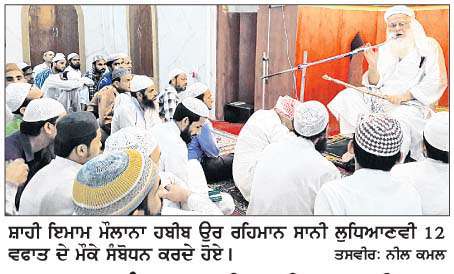 ਸ਼ਾਹੀ ਇਮਾਮ ਮੌਲਾਨਾ ਹਬੀਬ ਉਰ ਰਹਿਮਾਨ ਸਾਨੀ ਲੁਧਿਆਣਵੀ 12
ਵਫਾਤ ਦੇ ਮੌਕੇ ਸੰਬੋਧਨ ਕਰਦੇ ਹੋਏ। ਤਸਵੀਰ: ਨੀਲ ਕਮਲ